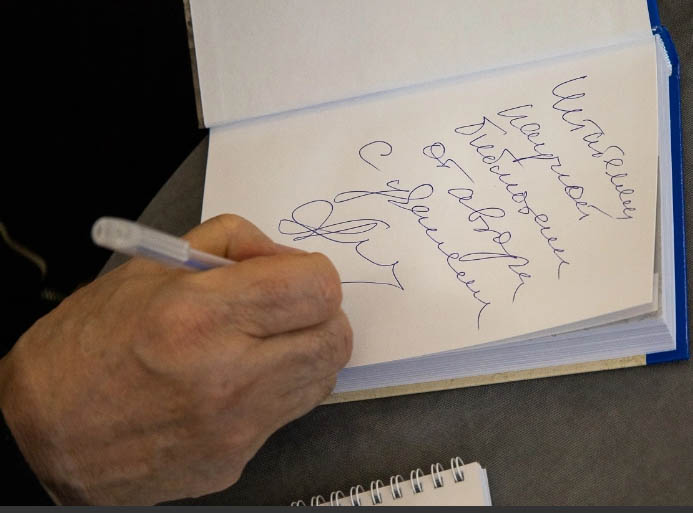 Читателям
научной
библиотеки
от автора
с уважением